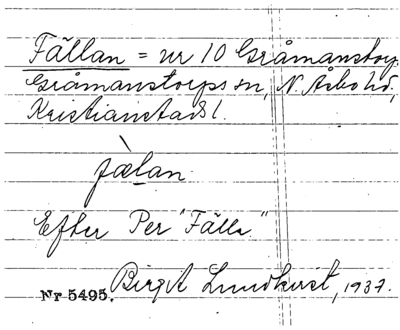 Fällan = nr 10 Gråmanstorp,
Gråmanstorps sn, N. Åsbo hd,
Kristianstads l.
fälan
Efter Per "Fälla"
Birgit Lundkvist, 1937.
Nr 5495.